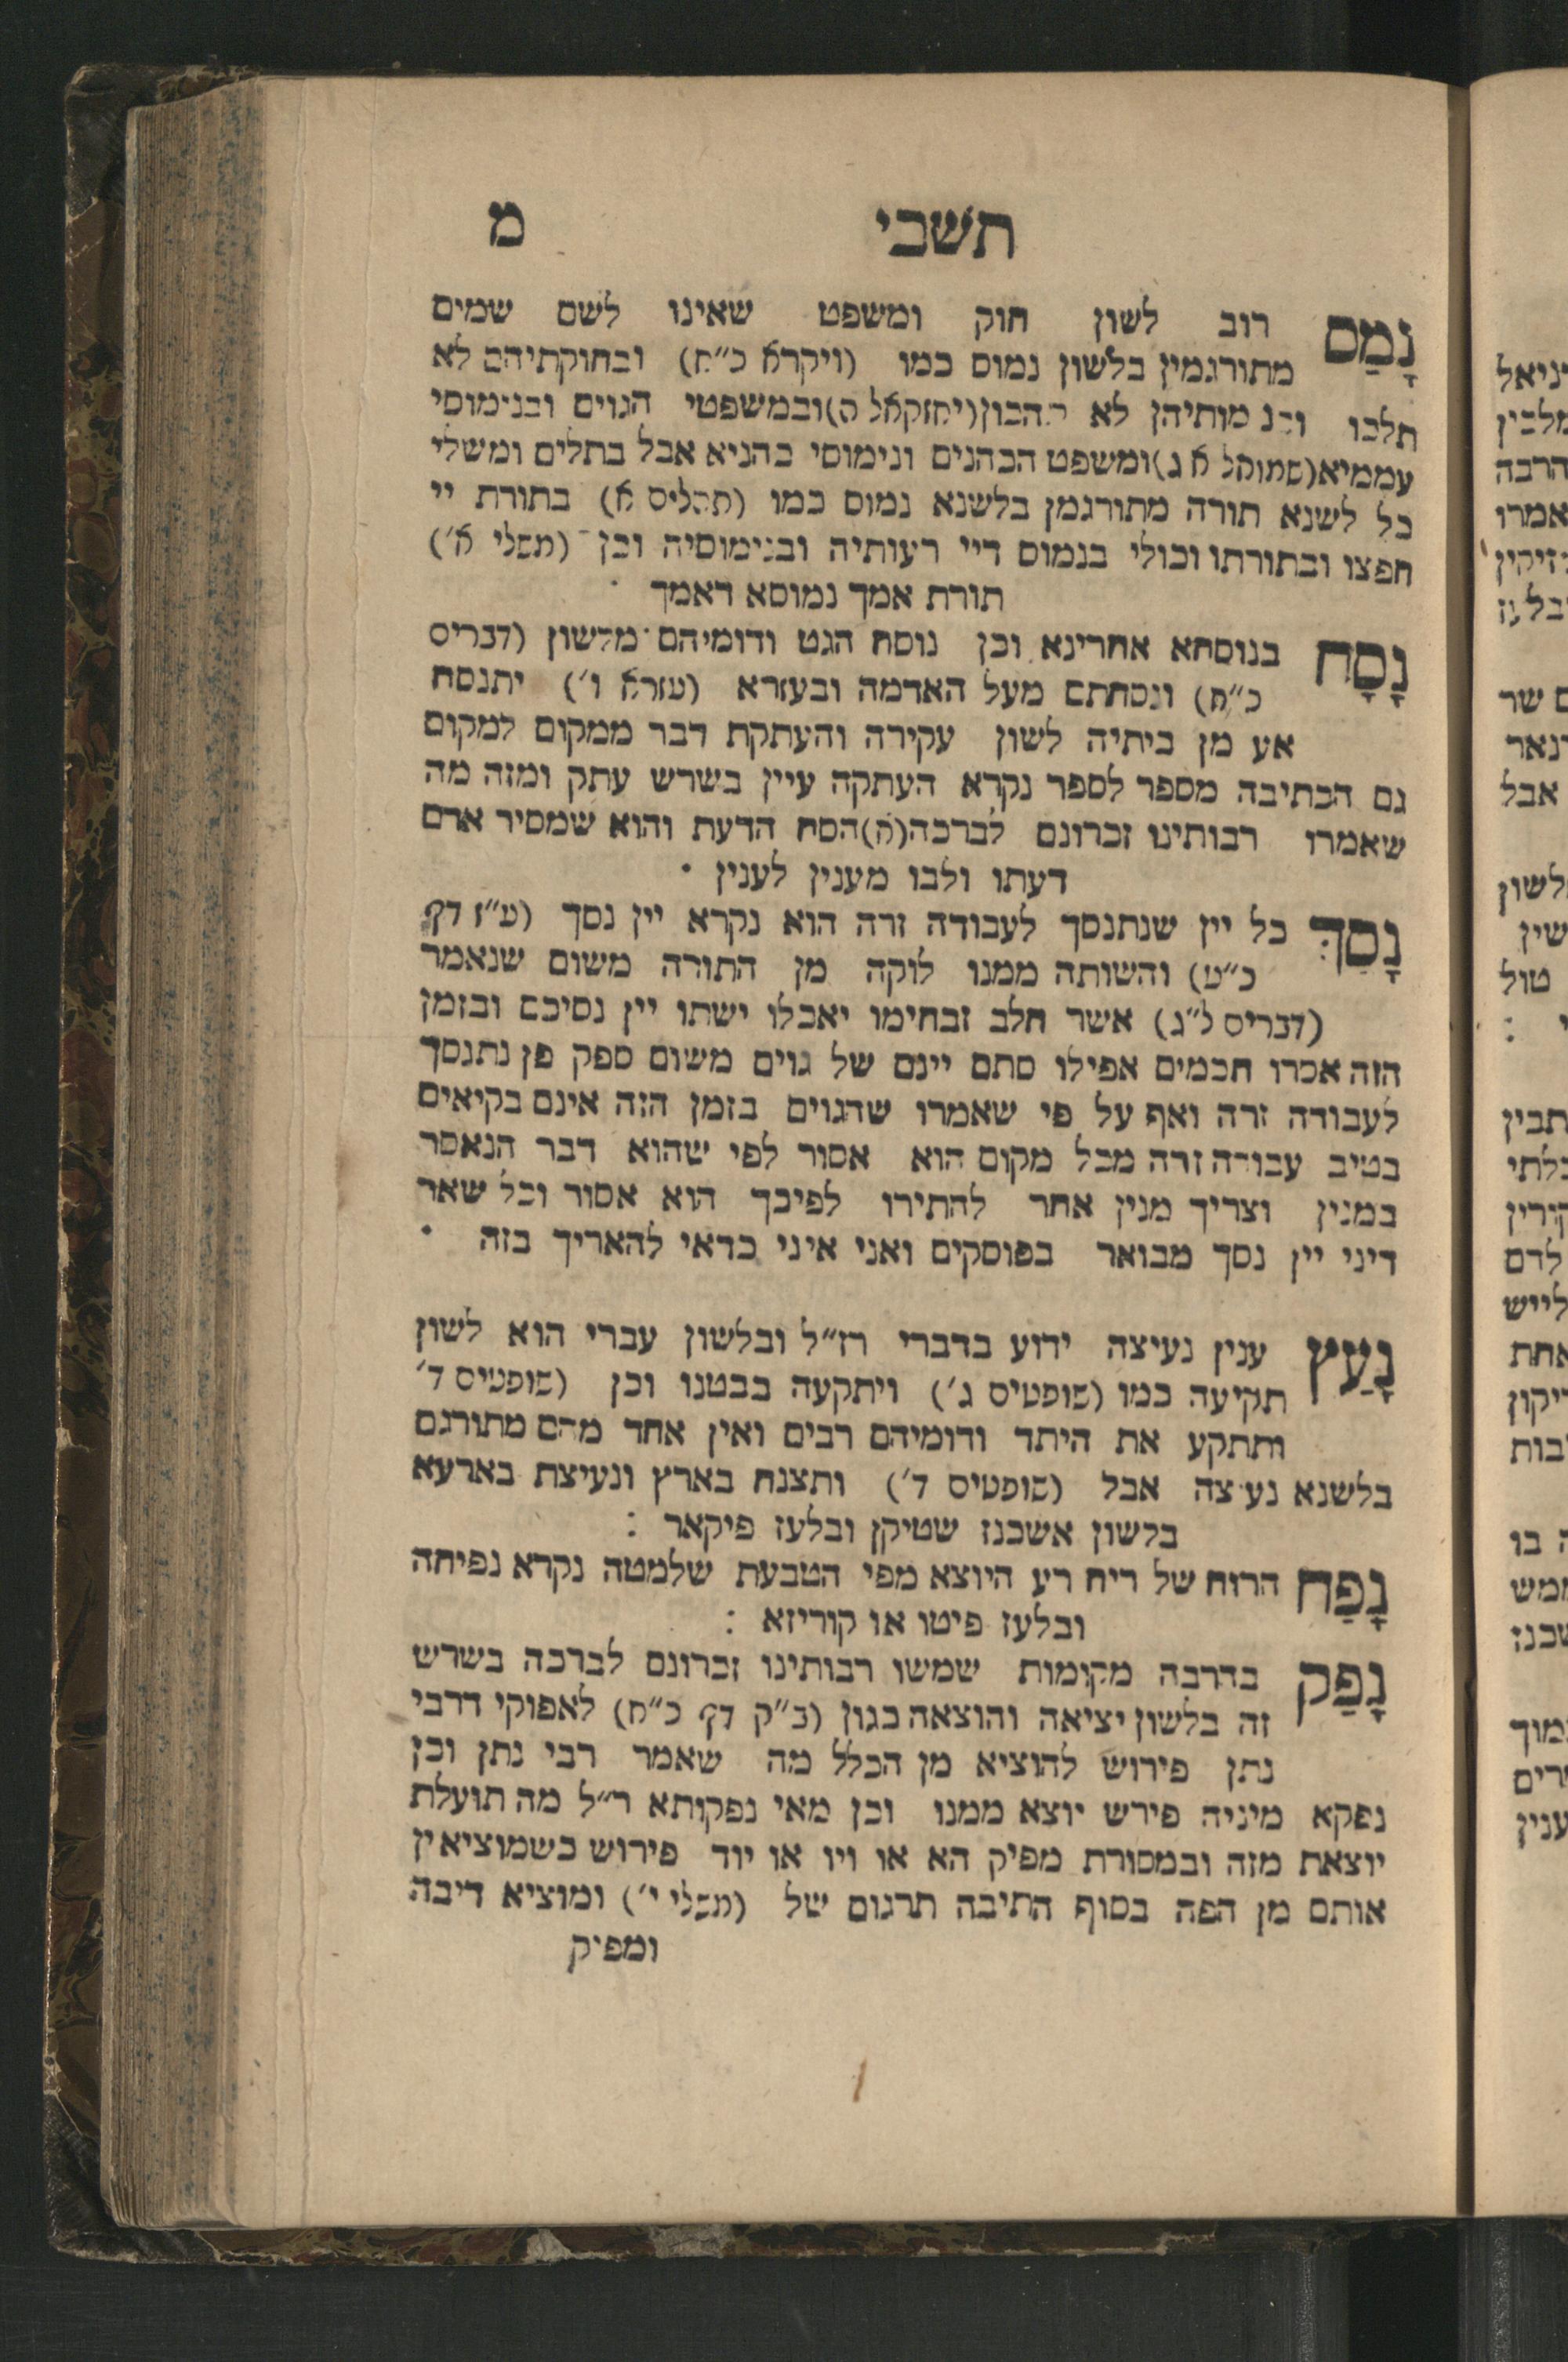 תשבי מ
נָמַס רוב לשון חוק ומשפט שאינו לשם שמים
מתורגמין בלשון נמוס כמו (ויקרא כ״ח) ובחוקתיהם לא
תלכו לא (יחזקאל ה) ובמשפטי הגוים ובנימוסי
עממיא (שמואל א ג) ומשפט הכהנים ונימוסי כהניא אבל בתלים ומשלי
כל לשנא תורה מתורגמן בלשנא נמוס כמו (תהלים א) בתורת יי
חפצו ובתורתו וכולי בנמוס דיי רעותיה ובנימוסיה וכן (משלי א׳)
תורת אמך נמוסא דאמך ·
נָסָח בנוסחא אחרינא וכן נוסח הגט ודומיהם מלשון (דברים
כ״ח) ונסחתם מעל האדמה ובעזרא (עזרא ו׳) יתנסח
אע מן ביתיה לשון עקירה והעתקת דבר ממקום למקום
גם הכתיבה מספר לספר נקרא העתקה עיין בשרש עתק ומזה מה
שאמרו רבותינו זכרונם לברכה (א) הסח הדעת והוא שמסיר אדם
דעתו ולבו מענין לענין ·
נָסַךְ כל יין שנתנסך לעבודה זרה הוא נקרא יין נסך (ע״ז דף
כ״ט) והשותה ממנו לוקה מן התורה משום שנאמר
(דברים ל״ג) אשר חלב זבחימו יאכלו ישתו יין נסיכם ובזמן
הזה אסרו חכמים אפילו סתם יינם של גוים משום ספק פן נתנסך
לעבודה זרה ואף על פי שאמרו שהגוים בזמן הזה אינם בקיאים
בטיב עבודה זרה מכל מקום הוא אסור לפי שהוא דבר הנאסר
במנין וצריך מנין אחר להתירו לפיכך הוא אסור וכל שאר
דיני יין נסך מבואר בפוסקים ואני איני כדאי להאריך בזה ·
נָעַץ ענין נעיצה ידוע בדברי רז״ל ובלשון עברי הוא לשון
תקיעה כמו (שופטים ג׳) ויתקעה בבטנו וכן (שופטים ד׳
ותתקע את היתד ודומיהם רבים ואין אחד מהם מתורגם
בלשנא נעיצה אבל (שופטים ד׳) ותצנח בארץ ונעיצת בארעא
בלשון אשכנז שטיקן ובלעז פיקאר :
נָפַח הרוח של ריח רע היוצא מפי הטבעת שלמטה נקרא נפיחה
ובלעז פיטו או קוריזא :
נָפַק בהרבה מקומות שמשו רבותינו זכרונם לברכה בשרש
זה בלשון יציאה והוצאה כגון (ב״ק דף כ״ח) לאפוקי דרבי
נתן פירוש להוציא מן הכלל מה שאמר רבי נתן וכן
נפקא מיניה פירש יוצא ממנו וכן מאי נפקותא ר״ל מה תועלת
יוצאת מזה ובמסורת מפיק הא או ויו או יוד פירוש כשמוציאין
אותם מן הפה בסוף התיבה תרגום של (משלי י׳) ומוציא דיבה
ומפיק